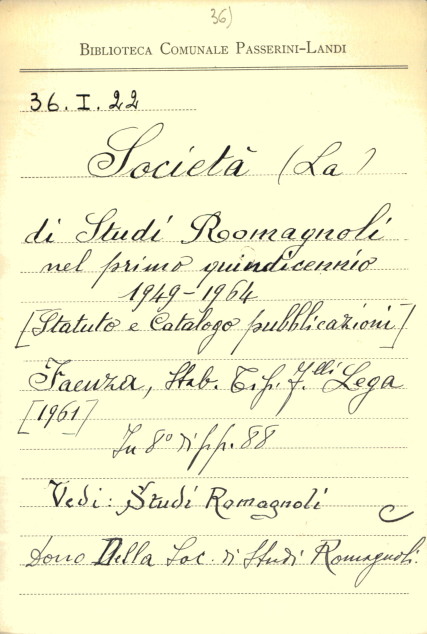 36)
BIBLIOTECA COMUNALE PASSERINI-LANDI
36. I. 22
Società (La)
di Studi Romagnoli
nel primo quindicennio
1949-1964
[Statuto e Catalogo pubblicazioni]
Faenza, Stab. Tip. F.lli Lega
[1961]
In 8° di pp. 88
Vedi: Studi Romagnoli
C
Dono Della Soc. di Studi Romagnoli.